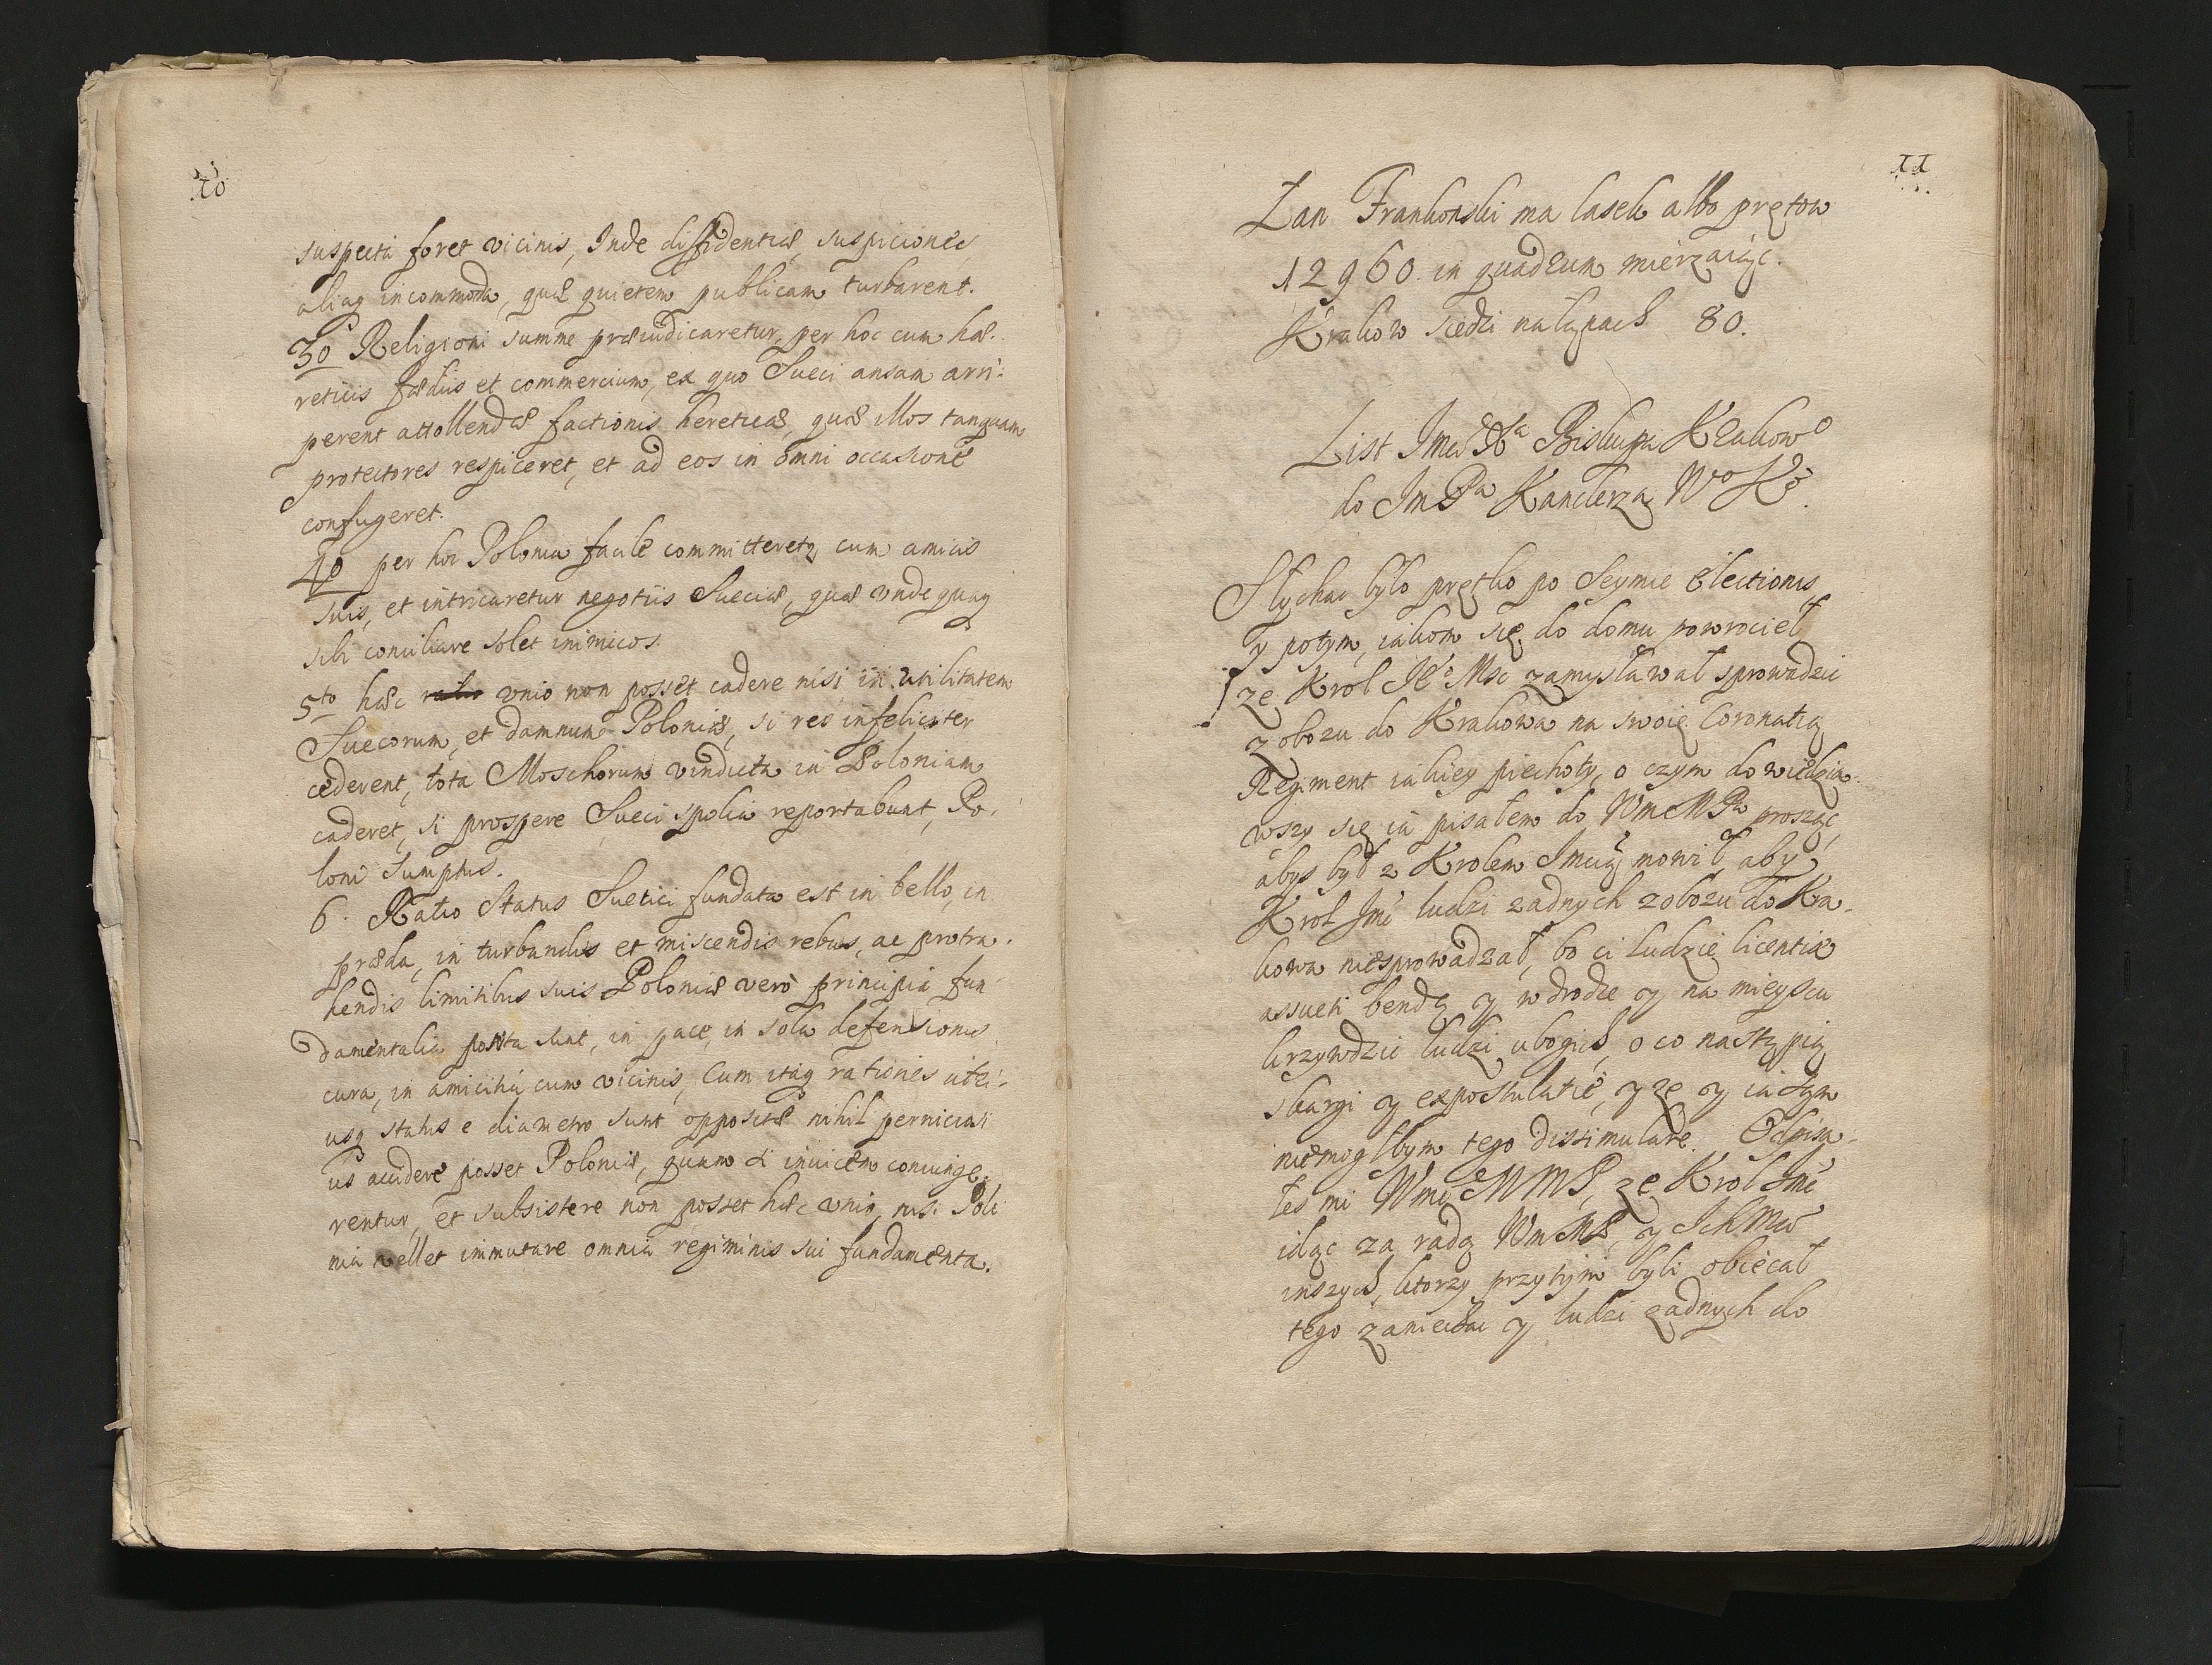 10
suspecta foret vicinis, Inde diffidentiæ, suspiciones,
aliaq incommoda, quæ quietem publicam turbarent.
3o Religioni summe præiudicaretur, per hoc cum hæ-
reticis fædus et commercium, ex quo Sueci ansam arri-
perent attollendæ factionis hereticæ, quæ illos tanquam
protectores respiceret, et ad eos in omni occasione
confugeret.
4o per hoc Polonia facile committeretq cum amicis
suis, et intricaretur negotiis Sueciæ, quæ vndequaq
sibi conciliare solet inimicos.
5to hæc ratio vnio non posset cadere nisi in utilitatem
Suecorum, et damnum Poloniæ, si res infeliciter
cederent, tota Moschorum vindicta in Poloniam
caderet, si prospere Sueci spolia reportabunt, Po-
loni Sumptus.
6. Ratio Status Suetici fundata est in bello, in
præda, in turbandis et miscendis rebus, ac protra-
hendis limitibus suis Poloniæ vero principia fun-
damentalia posita sunt, in pace, in sola defensionis
cura, in amicitia cum vicinis, Cum itaq rationes utri-
usq status e diametro sunt oppositæ nihil perniciosi
us accidere posset Poloniæ, quam si inuicem coniunge-
rentur, et subsistere non posset hæc vnio, nisi Polo
nia vellet immutare omnia regiminis sui fundamenta.
11
Łan Frankonski ma lasek albo prętow
12960 in quadrum mierzaiąc.
Krakow siedzi na łąnach 80.
List Jmci Xa Biskupa Krakowo
do Jm Pa Kanclerza Wo Ko.
Słychac było prętko po Seymie Electionis,
y potym, iakom się do domu powrocieł
ze Krol Jeo Msc zamyslawał sprowadzic
z obozu do Krakowa na swoię Coronatią
Regiment iakiey piechoty, o czym dowiedzia-
wszy się ia pisałem do WmMPa prosząc,
abys był z Krolem Jmcią mowił, aby
Krol Jmc ludzi zadnych z obozu do Kra-
kowa niesprowadzał, bo ci ludzie licentiæ
assueti bendą y w drodze y na mieyscu
krzywdzic ludzi ubogich, o co nastąpią
skargi y expostulatie, y ze y ia sam
niemogłbym tego dissimulare. Odpisa-
łes mi Wmc MMP, ze Krol Jmc
idąc za radą WmMP, y IchMcw
inszych, ktorzy przytym byli obiecał
tego zaniechac y ludzi zadnych do